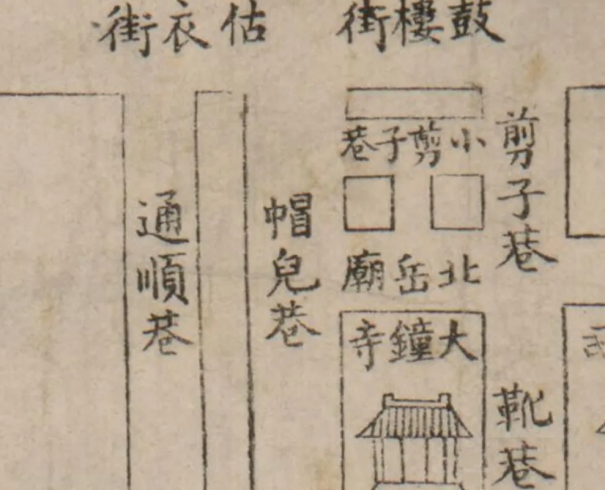 鼓樓街
估衣街
小剪子巷
剪子巷
北岳廟
帽兒巷
通順巷
大鐘寺
靴巷